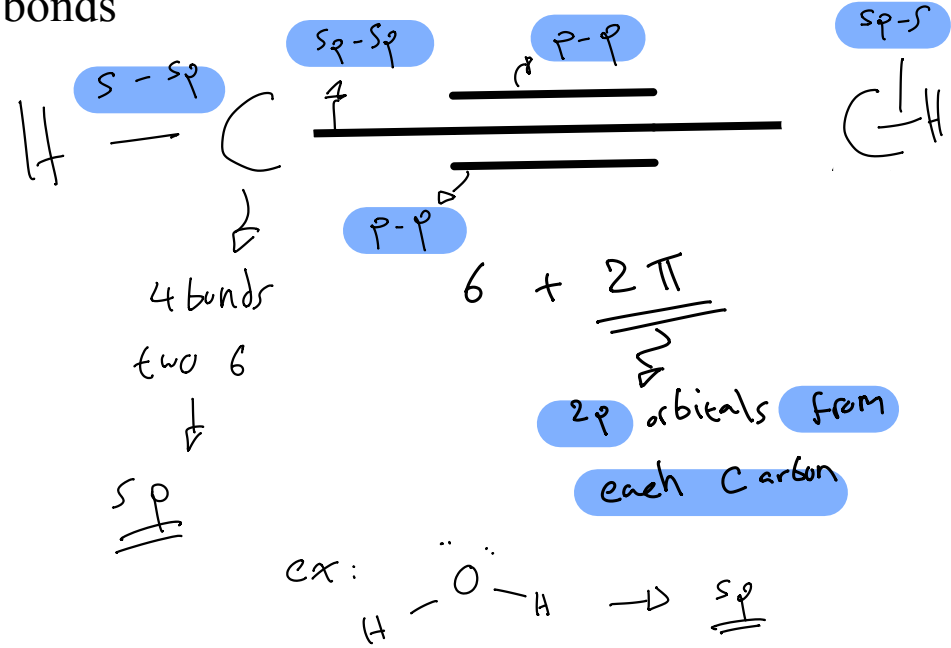 bonds
s - sp
sp-sp
p-p
sp-s
H — C
C-H
p-p
4 bonds
6 + 2π
two 6
2p orbitals from
sp
each Carbon
ex: H - O - H → sp